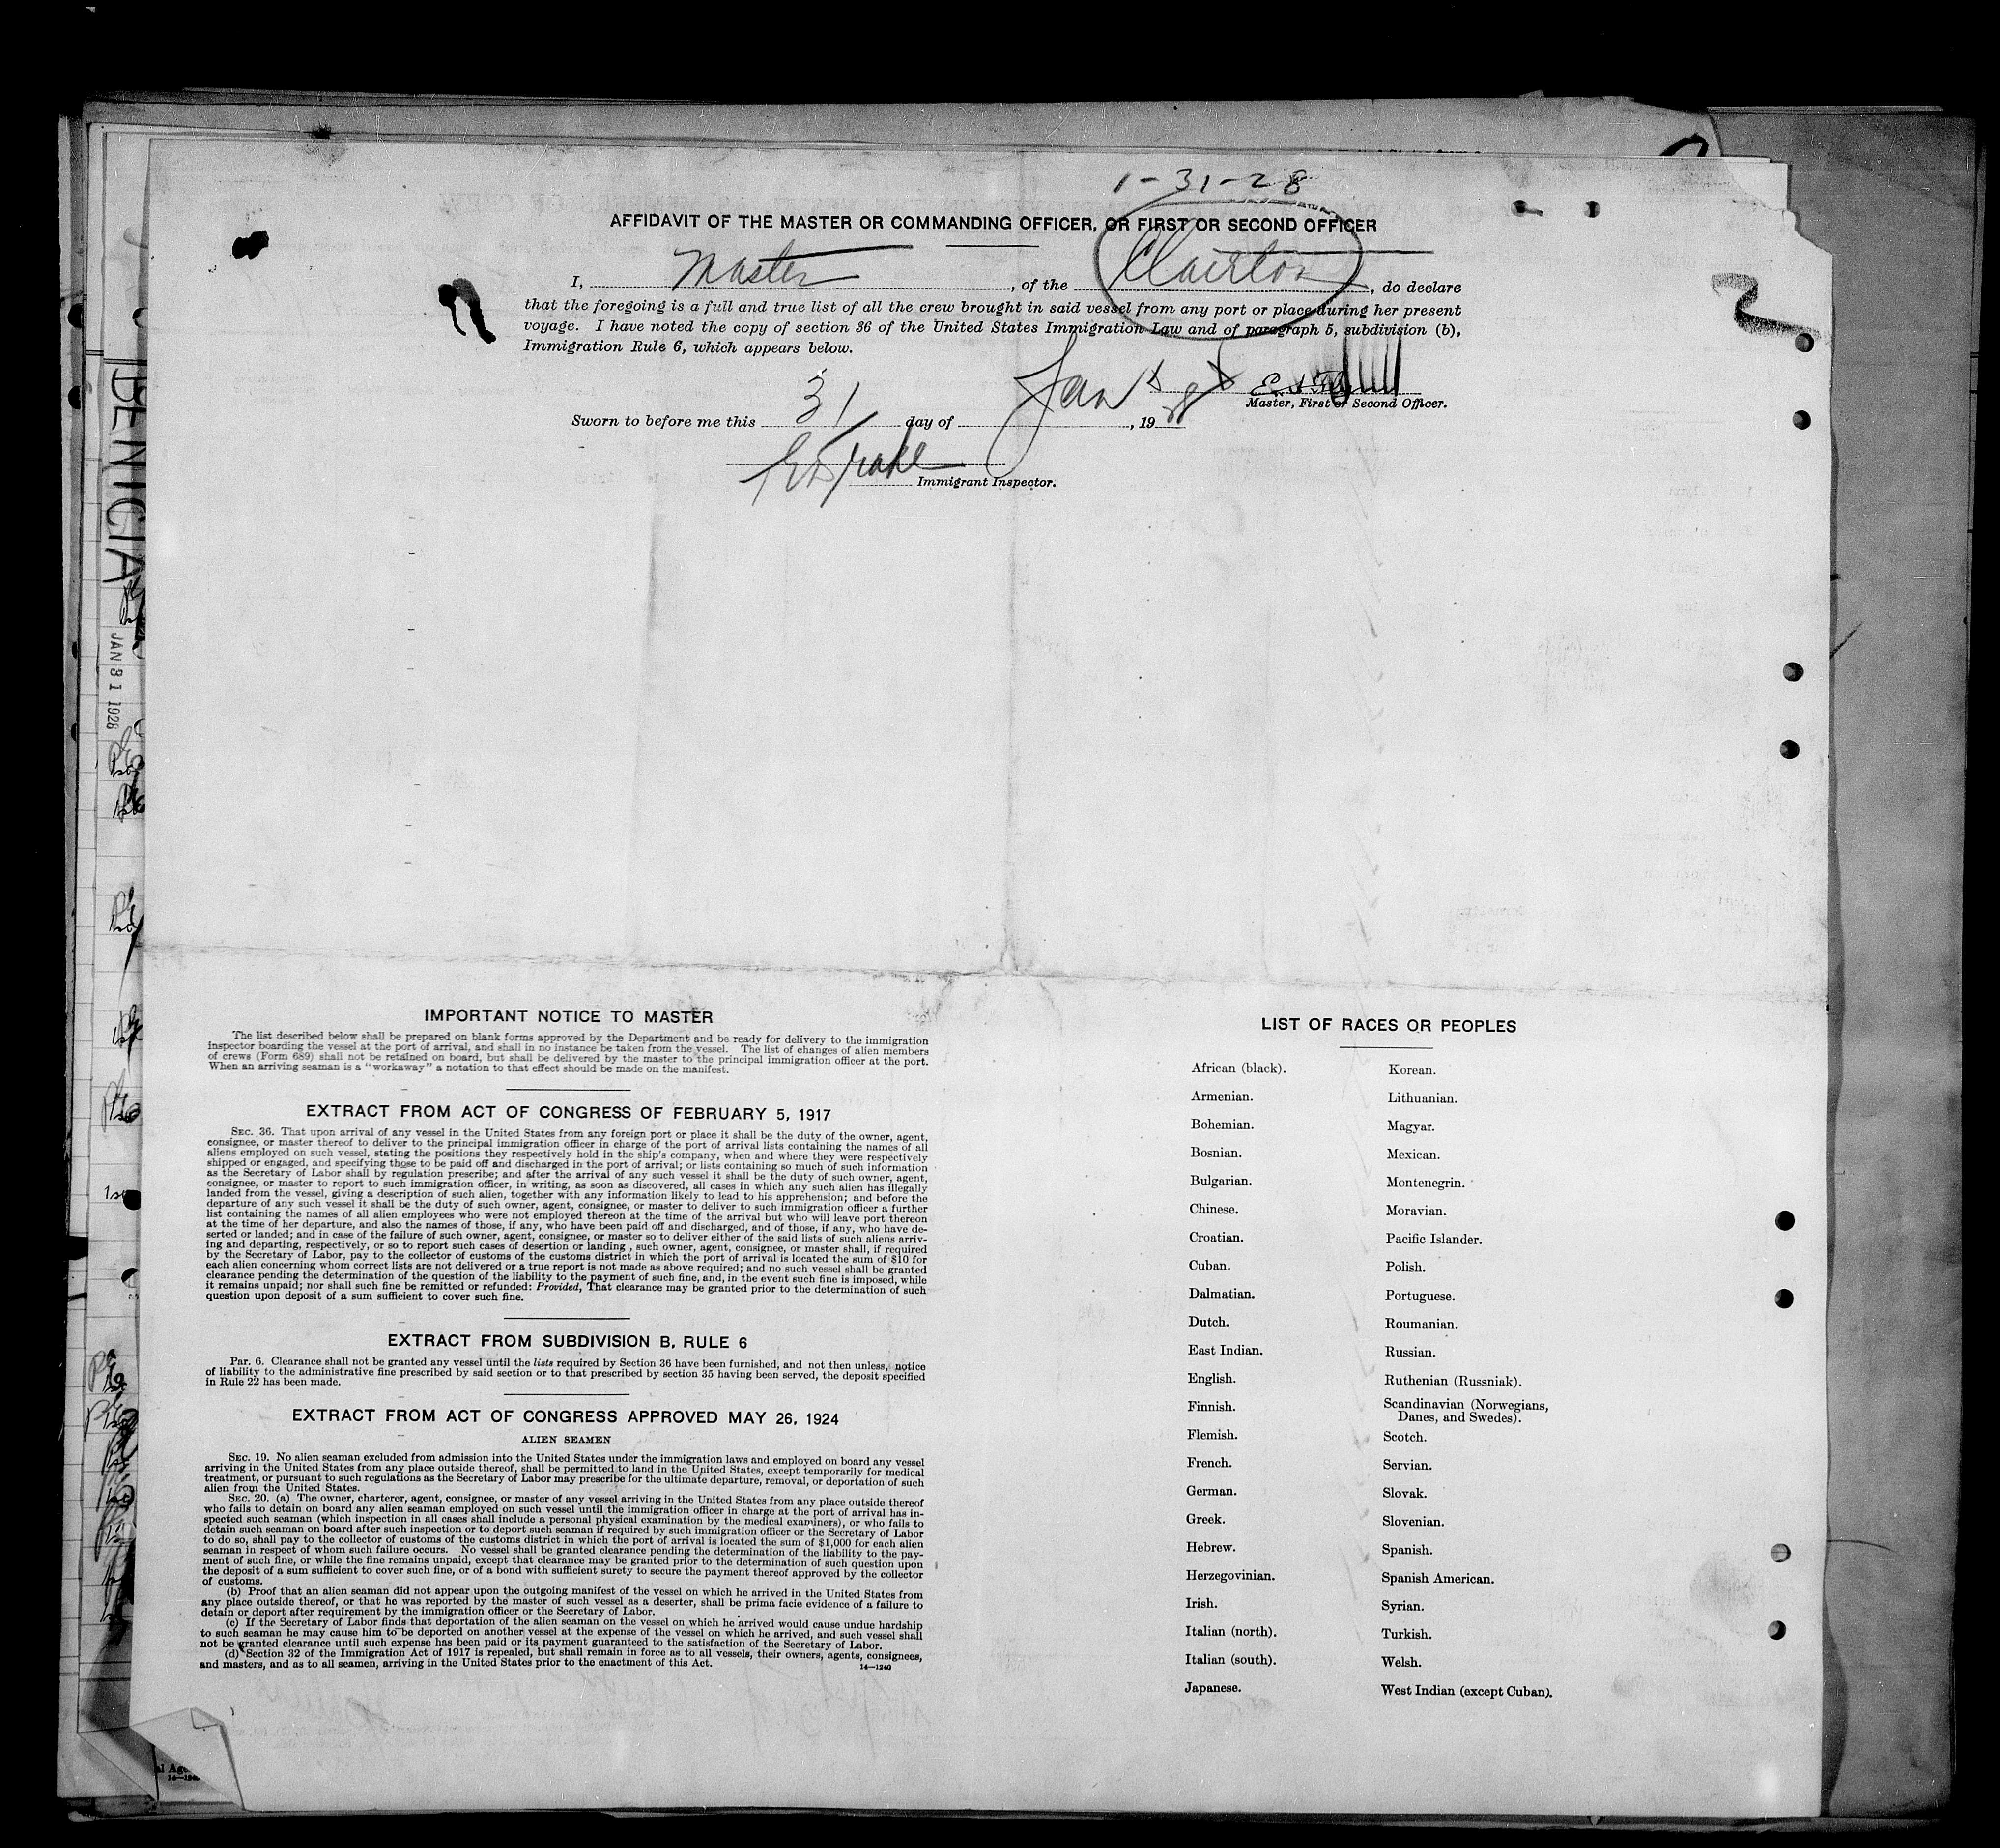 1-31-28
AFFIDAVIT OF THE MASTER OR COMMANDING OFFICER, OR FIRST OR SECOND OFFICER
I, Master, of the Clairton, do declare
that the foregoing is a full and true list of all the crew brought in said vessel from any port or place during her present
voyage. I have noted the copy of section 36 of the United States Immigration Law and of paragraph 5, subdivision (b),
Immigration Rule 6, which appears below.
Master, First or Second Officer.
Sworn to before me this 31 day of Jan, 1928
Immigrant Inspector.
BENICIA
JAN 31 1928
IMPORTANT NOTICE TO MASTER
The list described below shall be prepared on blank forms approved by the Department and be ready for delivery to the immigration
inspector boarding the vessel at the port of arrival, and shall in no instance be taken from the vessel. The list of changes of alien members
of crews (Form 689) shall not be retained on board, but shall be delivered by the master to the principal immigration officer at the port.
When an arriving seaman is a "workaway" a notation to that effect should be made on the manifest.
EXTRACT FROM ACT OF CONGRESS OF FEBRUARY 5, 1917
SEC. 36. That upon arrival of any vessel in the United States from any foreign port or place it shall be the duty of the owner, agent,
consignee, or master thereof to deliver to the principal immigration officer in charge of the port of arrival lists containing the names of all
aliens employed on such vessel, stating the positions they respectively hold in the ship's company, when and where they were respectively
shipped or engaged, and specifying those to be paid off and discharged in the port of arrival; or lists containing so much of such information
as the Secretary of Labor shall by regulation prescribe; and after the arrival of any such vessel it shall be the duty of such owner, agent,
consignee, or master to report to such immigration officer, in writing, as soon as discovered, all cases in which any such alien has illegally
landed from the vessel, giving a description of such alien, together with any information likely to lead to his apprehension; and before the
departure of any such vessel it shall be the duty of such owner, agent, consignee, or master to deliver to such immigration officer a further
list containing the names of all alien employees who were not employed thereon at the time of the arrival but who will leave port thereon
at the time of her departure, and also the names of those, if any, who have been paid off and discharged, and of those, if any, who have de-
serted or landed; and in case of the failure of such owner, agent, consignee, or master so to deliver either of the said lists of such aliens arriv-
ing and departing, respectively, or so to report such cases of desertion or landing, such owner, agent, consignee, or master shall, if required
by the Secretary of Labor, pay to the collector of customs of the customs district in which the port of arrival is located the sum of $10 for
each alien concerning whom correct lists are not delivered or a true report is not made as above required; and no such vessel shall be granted
clearance pending the determination of the question of the liability to the payment of such fine, and, in the event such fine is imposed, while
it remains unpaid; nor shall such fine be remitted or refunded: Provided, That clearance may be granted prior to the determination of such
question upon deposit of a sum sufficient to cover such fine.
EXTRACT FROM SUBDIVISION B, RULE 6
Par. 6. Clearance shall not be granted any vessel until the lists required by Section 36 have been furnished, and not then unless, notice
of liability to the administrative fine prescribed by said section or to that prescribed by section 35 having been served, the deposit specified
in Rule 22 has been made.
EXTRACT FROM ACT OF CONGRESS APPROVED MAY 26, 1924
ALIEN SEAMEN
SEC. 19. No alien seaman excluded from admission into the United States under the immigration laws and employed on board any vessel
arriving in the United States from any place outside thereof, shall be permitted to land in the United States, except temporarily for medical
treatment, or pursuant to such regulations as the Secretary of Labor may prescribe for the ultimate departure, removal, or deportation of such
alien from the United States.
SEC. 20. (a) The owner, charterer, agent, consignee, or master of any vessel arriving in the United States from any place outside thereof
who fails to detain on board any alien seaman employed on such vessel until the immigration officer in charge at the port of arrival has in-
spected such seaman (which inspection in all cases shall include a personal physical examination by the medical examiners), or who fails to
detain such seaman on board after such inspection or to deport such seaman if required by such immigration officer or the Secretary of Labor
to do so, shall pay to the collector of customs of the customs district in which the port of arrival is located the sum of $1,000 for each alien
seaman in respect of whom such failure occurs. No vessel shall be granted clearance pending the determination of the liability to the pay-
ment of such fine, or while the fine remains unpaid, except that clearance may be granted prior to the determination of such question upon
the deposit of a sum sufficient to cover such fine, or of a bond with sufficient surety to secure the payment thereof approved by the collector
of customs.
(b) Proof that an alien seaman did not appear upon the outgoing manifest of the vessel on which he arrived in the United States from
any place outside thereof, or that he was reported by the master of such vessel as a deserter, shall be prima facie evidence of a failure to
detain or deport after requirement by the immigration officer or the Secretary of Labor.
(c) If the Secretary of Labor finds that deportation of the alien seaman on the vessel on which he arrived would cause undue hardship
to such seaman he may cause him to be deported on another vessel at the expense of the vessel on which he arrived, and such vessel shall
not be granted clearance until such expense has been paid or its payment guaranteed to the satisfaction of the Secretary of Labor.
(d) Section 32 of the Immigration Act of 1917 is repealed, but shall remain in force as to all vessels, their owners, agents, consignees,
and masters, and as to all seamen, arriving in the United States prior to the enactment of this Act.
14—1240
LIST OF RACES OR PEOPLES
African (black).
Armenian.
Bohemian.
Bosnian.
Bulgarian.
Chinese.
Croatian.
Cuban.
Dalmatian.
Dutch.
East Indian.
English.
Finnish.
Flemish.
French.
German.
Greek.
Hebrew.
Herzegovinian.
Irish.
Italian (north).
Italian (south).
Japanese.
Korean.
Lithuanian.
Magyar.
Mexican.
Montenegrin.
Moravian.
Pacific Islander.
Polish.
Portuguese.
Roumanian.
Russian.
Ruthenian (Russniak).
Scandinavian (Norwegians,
Danes, and Swedes).
Scotch.
Servian.
Slovak.
Slovenian.
Spanish.
Spanish American.
Syrian.
Turkish.
Welsh.
West Indian (except Cuban).